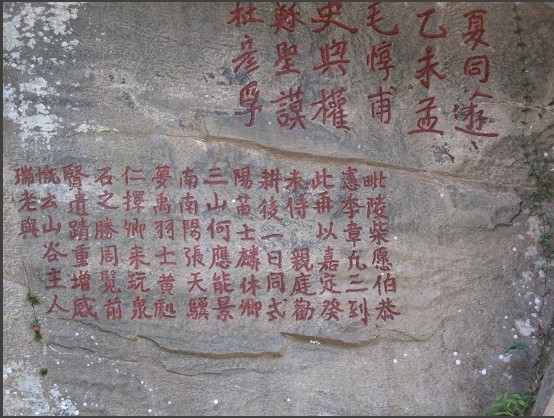 夏同途
乙未孟
毛惇甫
史與權
蘇聖謨
杜彥孚
毗陵柴愿伯恭
憲李章凡三到
此再以嘉定癸
未侍親庭勸
耕後一日同弍
陽黃士麟休卿
三山何應能景
南南陽張天驥
夢禹羽士黃勉
仁擇卿來玩泉
石之勝周覽前
賢遺蹟重增感
慨云山谷主人
瑞老與